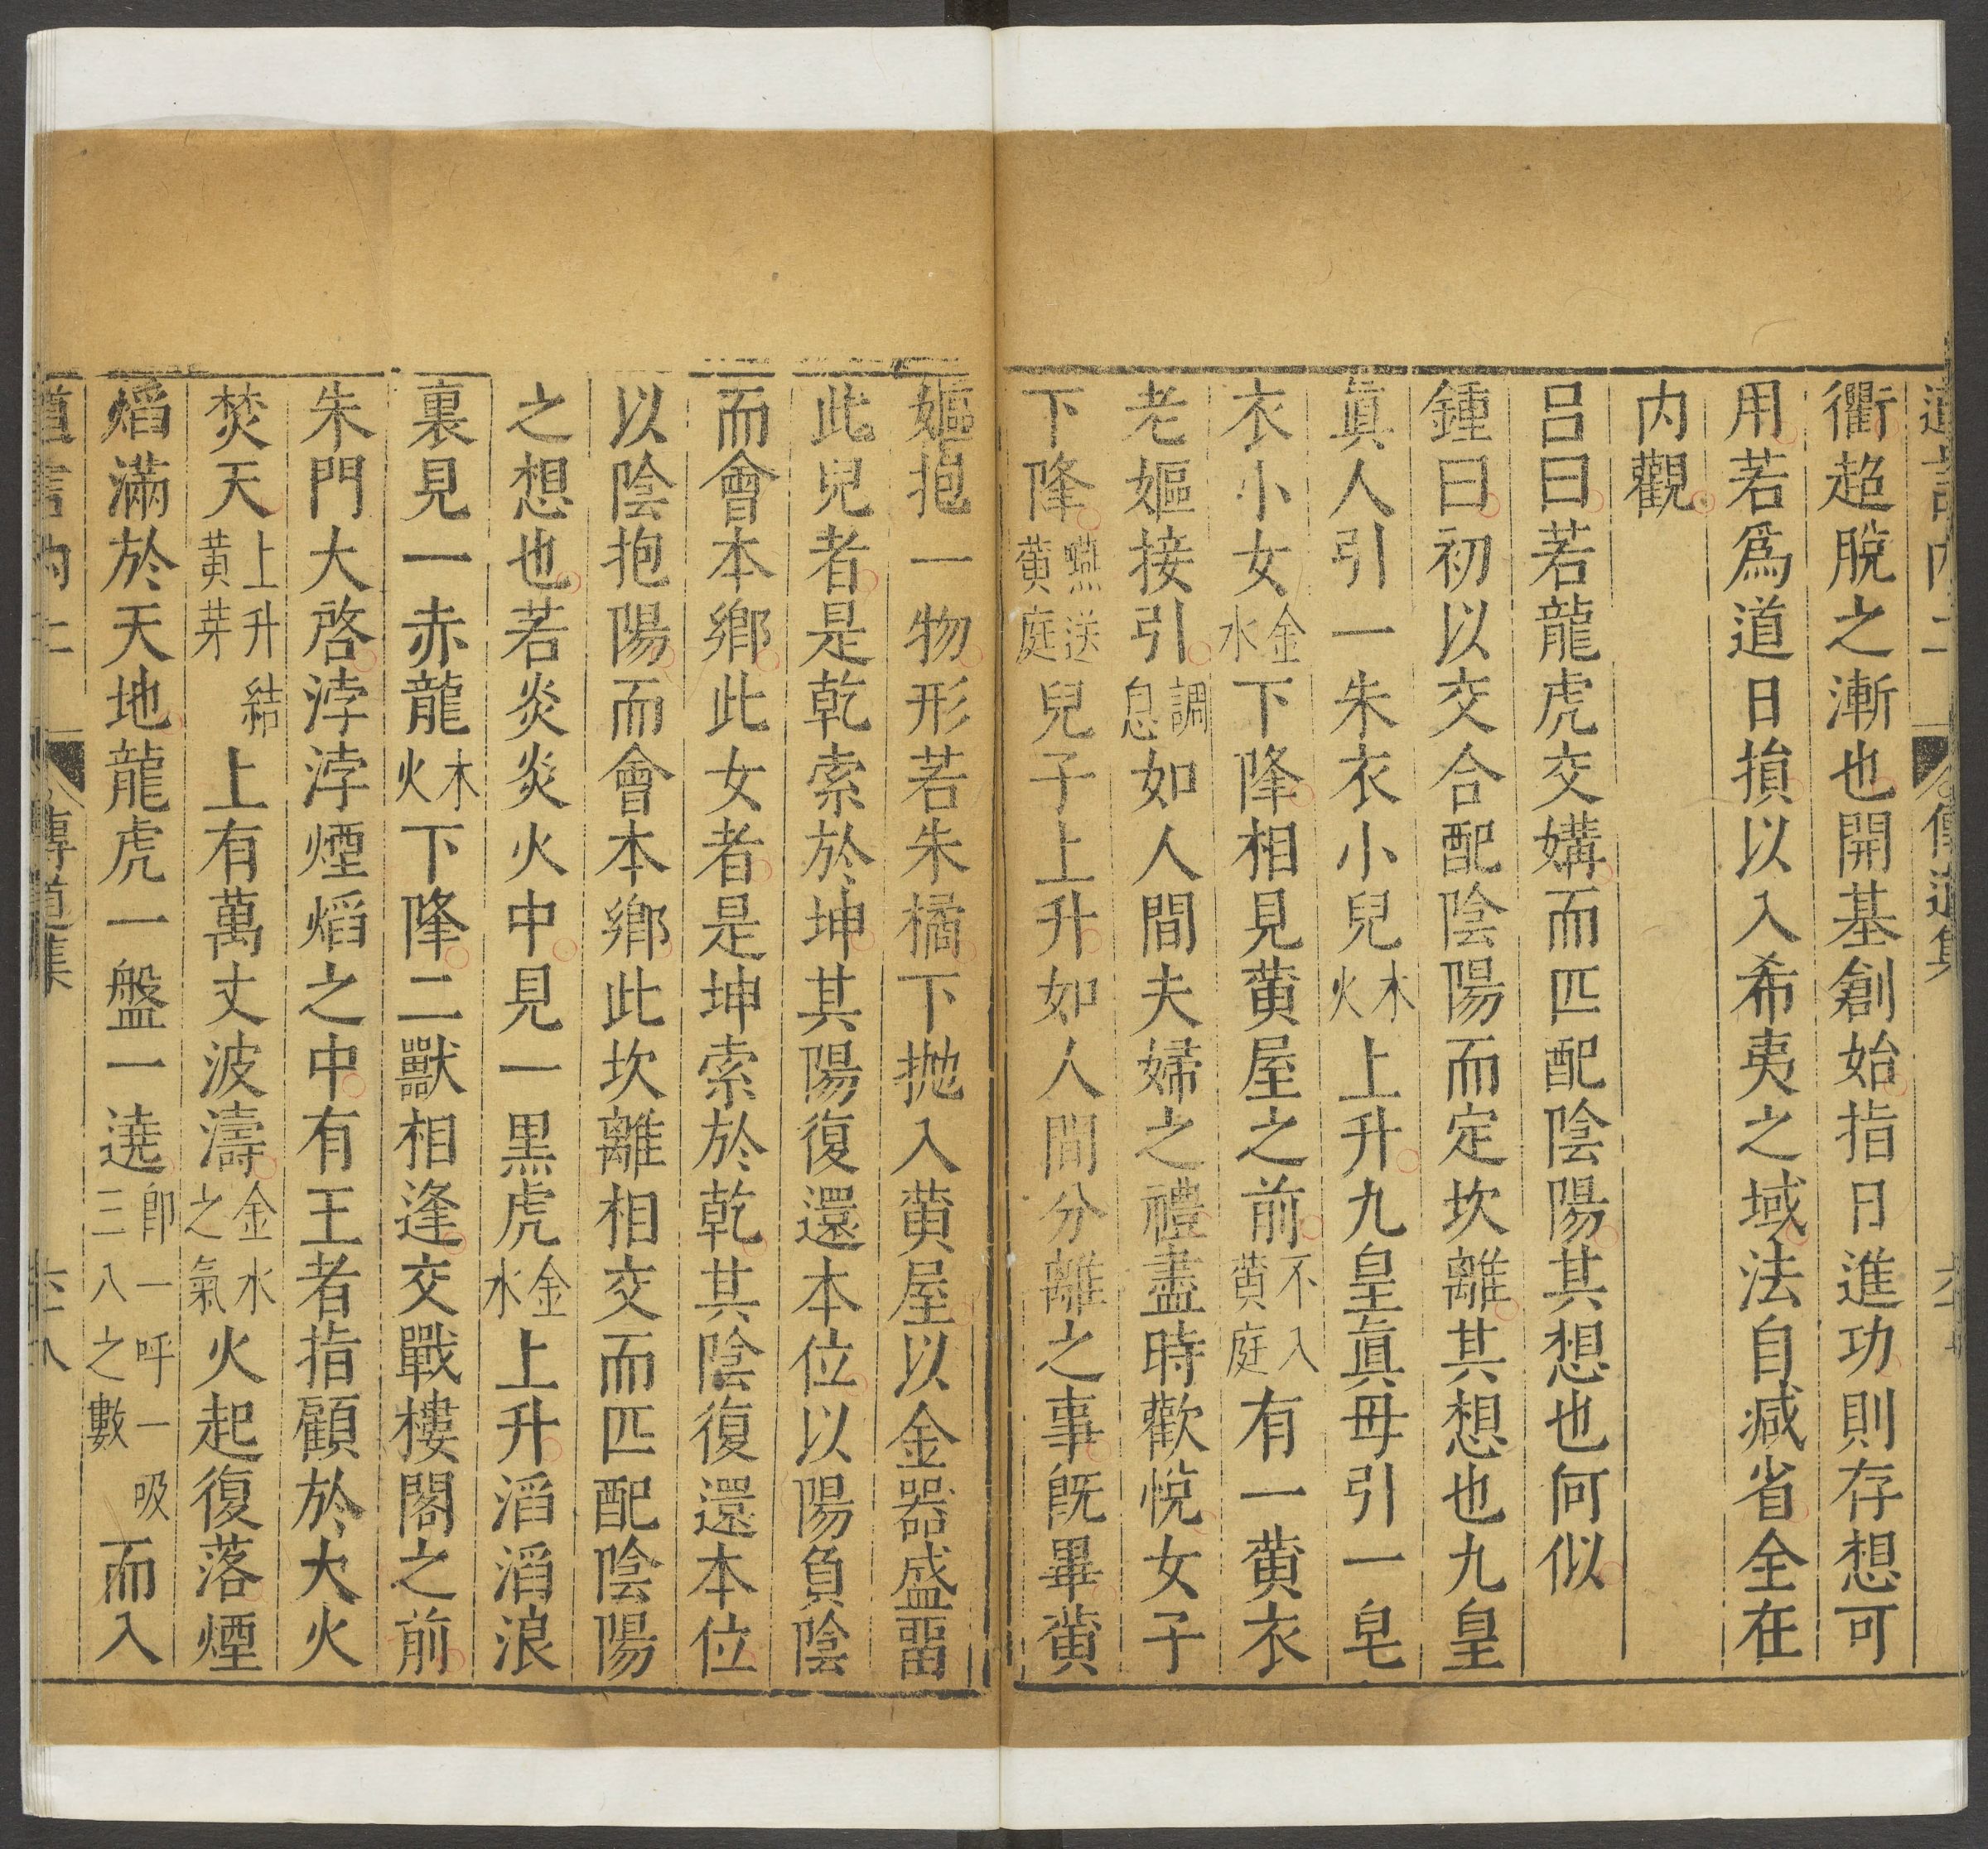 衢超脫之漸也開基創始指日進功則存想可
用若爲道日損以入希夷之域法自減省全在
内觀
吕曰若龍虎交媾而匹配陰陽其想也何似
鍾曰初以交合配陰陽而定坎離其想也九皇
眞人引一朱衣小兒木火上升九皇眞母引一皂
衣小女金水下降相見黄屋之前不入黄庭有一黄衣
老嫗接引調息如人間夫婦之禮盡時歡悅女子
下降嚥送黄庭兒子上升如人間分離之事旣畢黄
嫗抱一物形若朱橘下拋入黄屋以金器盛畱
此兒者是乾索於坤其陽復還本位以陽負陰
而會本鄉此女者是坤索於乾其陰復還本位
以陰抱陽而會本鄉此坎離相交而匹配陰陽
之想也若炎炎火中見一黑虎金水上升滔滔浪
裏見一赤龍木火下降二獸相逢交戰樓閣之前
朱門大啓浡浡煙熖之中有王者指顧於大火
焚天上升結黄芽上有萬丈波濤金水之氣火起復落煙
熖滿於天地龍虎一盤一遶卽一呼一吸三八之數而入
傳道集